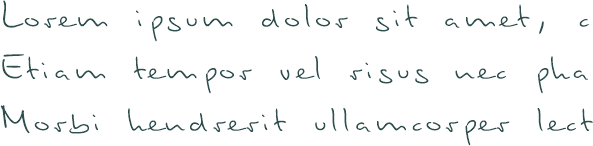 Lorem ipsum dolor sit amet, c
Etiam tempor vel risus nec pha
Morbi hendrerit ullamcorper lect